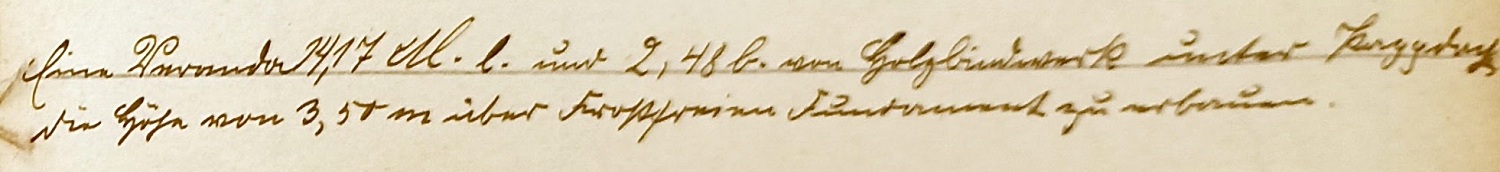 Eine Veranda 4,17 M. l. und 2,48 b. von Holzbindwerk unter Pappdach
die Höhe von 3,50 m über Frostfreien Fundament zu erbauen.